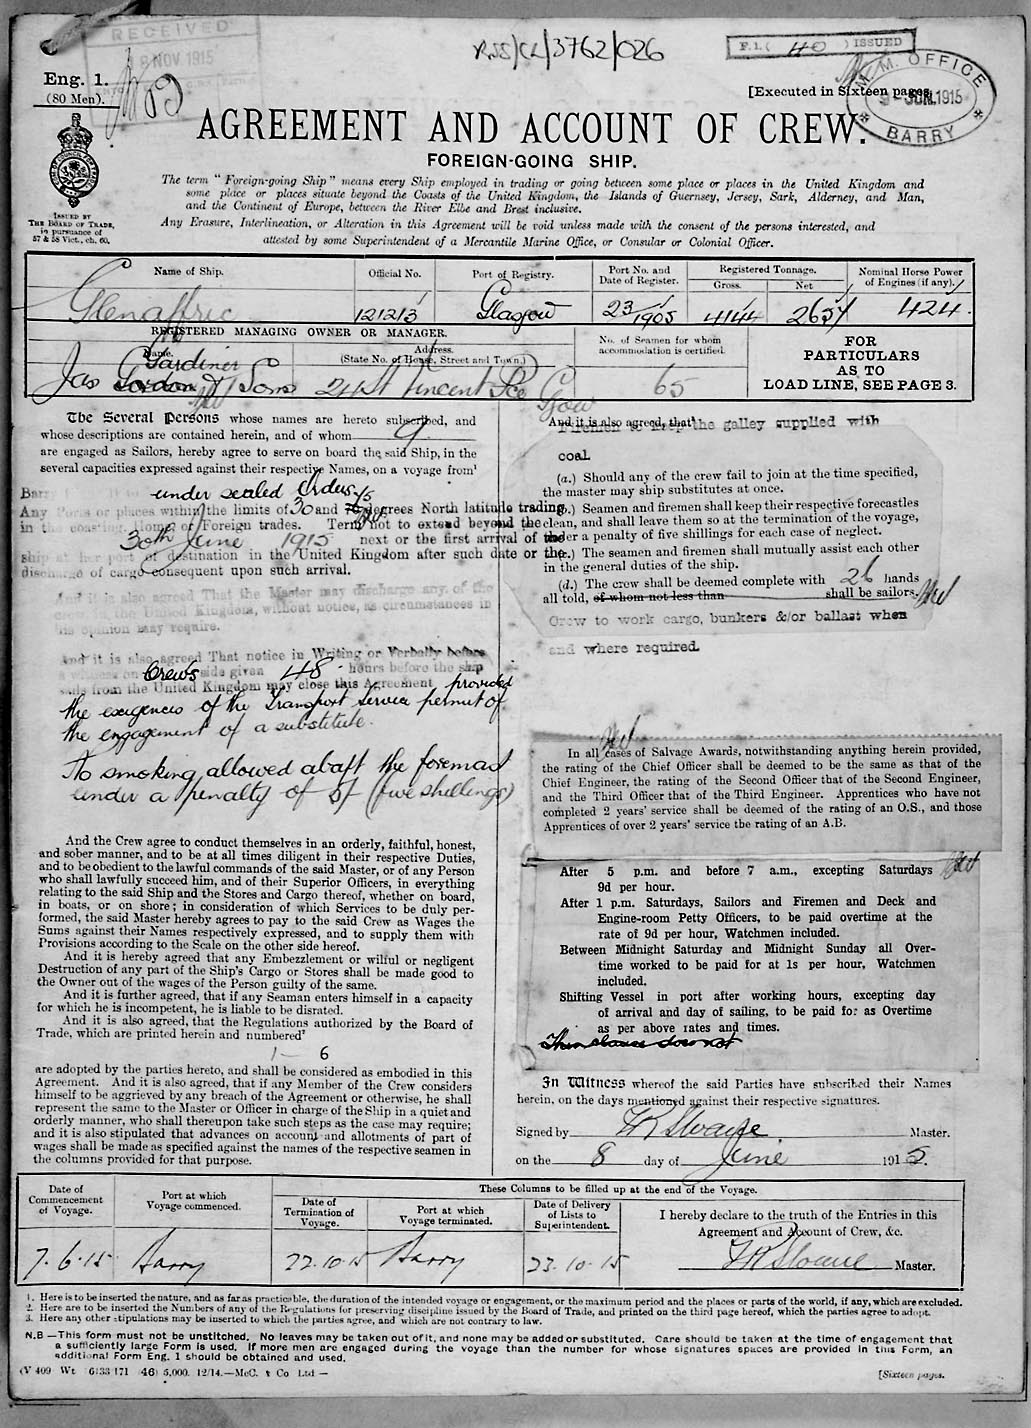 RECEIVED
8 NOV 1915
RSS/CL/3762/026
F.1.( 40 ) ISSUED
Eng. 1.
(80 Men).
[Executed in Sixteen pages.
M. M. OFFICE
9 - JUN. 1915
BARRY
AGREEMENT AND ACCOUNT OF CREW.
FOREIGN-GOING SHIP.
ISSUED BY
THE BOARD OF TRADE,
in pursuance of
57 & 58 Vict., ch. 60.
The term "Foreign-going Ship" means every Ship employed in trading or going between some place or places in the United Kingdom and
some place or places situate beyond the Coasts of the United Kingdom, the Islands of Guernsey, Jersey, Sark, Alderney, and Man,
and the Continent of Europe, between the River Elbe and Brest inclusive.
Any Erasure, Interlineation, or Alteration in this Agreement will be void unless made with the consent of the persons interested, and
attested by some Superintendent of a Mercantile Marine Office, or Consular or Colonial Officer.
Name of Ship. Official No. Port of Registry. Port No. and Date of Register. Registered Tonnage. Gross. Net Nominal Horse Power of Engines (if any).
Glenaffric 121213 Glasgow 23/1905 4144 2657 424
REGISTERED MANAGING OWNER OR MANAGER.
Name. Address. (State No. of House, Street and Town.)
No. of Seamen for whom accommodation is certified.
FOR
PARTICULARS
AS TO
LOAD LINE, SEE PAGE 3.
Gardiner
Jas Gordon & Sons 24 St Vincent Plce Gow 65
The Several Persons whose names are hereto subscribed, and
whose descriptions are contained herein, and of whom 9
are engaged as Sailors, hereby agree to serve on board the said Ship, in the
several capacities expressed against their respective Names, on a voyage from¹
Barry under sealed Orders
Any Ports or places within the limits of 30 and 75 degrees North latitude trading
in the coasting, Home or Foreign trades. Term not to extend beyond the
30th June 1915 next or the first arrival of the
ship at her port of destination in the United Kingdom after such date or the
discharge of cargo consequent upon such arrival.
And it is also agreed That the Master may discharge any of the
crew in the United Kingdom, without notice, as circumstances in
his opinion may require.
And it is also agreed That notice in Writing or Verbally before
a witness on Crew's side given 48 hours before the ship
sails from the United Kingdom may close this Agreement provided
the exigences of the Transport Service permit of
the engagement of a substitute.
No smoking allowed abaft the foremast
under a penalty of 5/ (five shillings)
And the Crew agree to conduct themselves in an orderly, faithful, honest,
and sober manner, and to be at all times diligent in their respective Duties,
and to be obedient to the lawful commands of the said Master, or of any Person
who shall lawfully succeed him, and of their Superior Officers, in everything
relating to the said Ship and the Stores and Cargo thereof, whether on board,
in boats, or on shore; in consideration of which Services to be duly per-
formed, the said Master hereby agrees to pay to the said Crew as Wages the
Sums against their Names respectively expressed, and to supply them with
Provisions according to the Scale on the other side hereof.
And it is hereby agreed that any Embezzlement or wilful or negligent
Destruction of any part of the Ship's Cargo or Stores shall be made good to
the Owner out of the wages of the Person guilty of the same.
And it is further agreed, that if any Seaman enters himself in a capacity
for which he is incompetent, he is liable to be disrated.
And it is also agreed, that the Regulations authorized by the Board of
Trade, which are printed herein and numbered²
1 — 6
are adopted by the parties hereto, and shall be considered as embodied in this
Agreement. And it is also agreed, that if any Member of the Crew considers
himself to be aggrieved by any breach of the Agreement or otherwise, he shall
represent the same to the Master or Officer in charge of the Ship in a quiet and
orderly manner, who shall thereupon take such steps as the case may require;
and it is also stipulated that advances on account and allotments of part of
wages shall be made as specified against the names of the respective seamen in
the columns provided for that purpose.
And it is also agreed, that³
Firemen to keep the galley supplied with
coal.
(a.) Should any of the crew fail to join at the time specified,
the master may ship substitutes at once.
(b.) Seamen and firemen shall keep their respective forecastles
clean, and shall leave them so at the termination of the voyage,
under a penalty of five shillings for each case of neglect.
(c.) The seamen and firemen shall mutually assist each other
in the general duties of the ship.
(d.) The crew shall be deemed complete with 26 hands
all told, of whom not less than shall be sailors.
Crew to work cargo, bunkers &/or ballast when
and where required.
In all cases of Salvage Awards, notwithstanding anything herein provided,
the rating of the Chief Officer shall be deemed to be the same as that of the
Chief Engineer, the rating of the Second Officer that of the Second Engineer,
and the Third Officer that of the Third Engineer. Apprentices who have not
completed 2 years' service shall be deemed of the rating of an O.S., and those
Apprentices of over 2 years' service the rating of an A.B.
After 5 p.m. and before 7 a.m., excepting Saturdays
9d per hour.
After 1 p.m. Saturdays, Sailors and Firemen and Deck and
Engine-room Petty Officers, to be paid overtime at the
rate of 9d per hour, Watchmen included.
Between Midnight Saturday and Midnight Sunday all Over-
time worked to be paid for at 1s per hour, Watchmen
included.
Shifting Vessel in port after working hours, excepting day
of arrival and day of sailing, to be paid for as Overtime
as per above rates and times.
This clause does not
In Witness whereof the said Parties have subscribed their Names
herein, on the days mentioned against their respective signatures.
Signed by F R Sloane Master.
on the 8 day of June 1915.
Date of Commencement of Voyage. Port at which Voyage commenced. These Columns to be filled up at the end of the Voyage.
Date of Termination of Voyage. Port at which Voyage terminated. Date of Delivery of Lists to Superintendent.
I hereby declare to the truth of the Entries in this
Agreement and Account of Crew, &c.
7.6.15 Barry 22.10.15 Barry 23.10.15 F R Sloane Master.
1. Here is to be inserted the nature, and as far as practicable, the duration of the intended voyage or engagement, or the maximum period and the places or parts of the world, if any, which are excluded.
2. Here are to be inserted the Numbers of any of the Regulations for preserving discipline issued by the Board of Trade, and printed on the third page hereof, which the parties agree to adopt.
3. Here any other stipulations may be inserted to which the parties agree, and which are not contrary to law.
N.B—This form must not be unstitched. No leaves may be taken out of it, and none may be added or substituted. Care should be taken at the time of engagement that
a sufficiently large Form is used. If more men are engaged during the voyage than the number for whose signatures spaces are provided in this Form, an
additional Form Eng. 1 should be obtained and used.
(V 409 Wt 6133/171 (46) 5,000. 12/14.—McC. & Co Ltd—
[Sixteen pages.